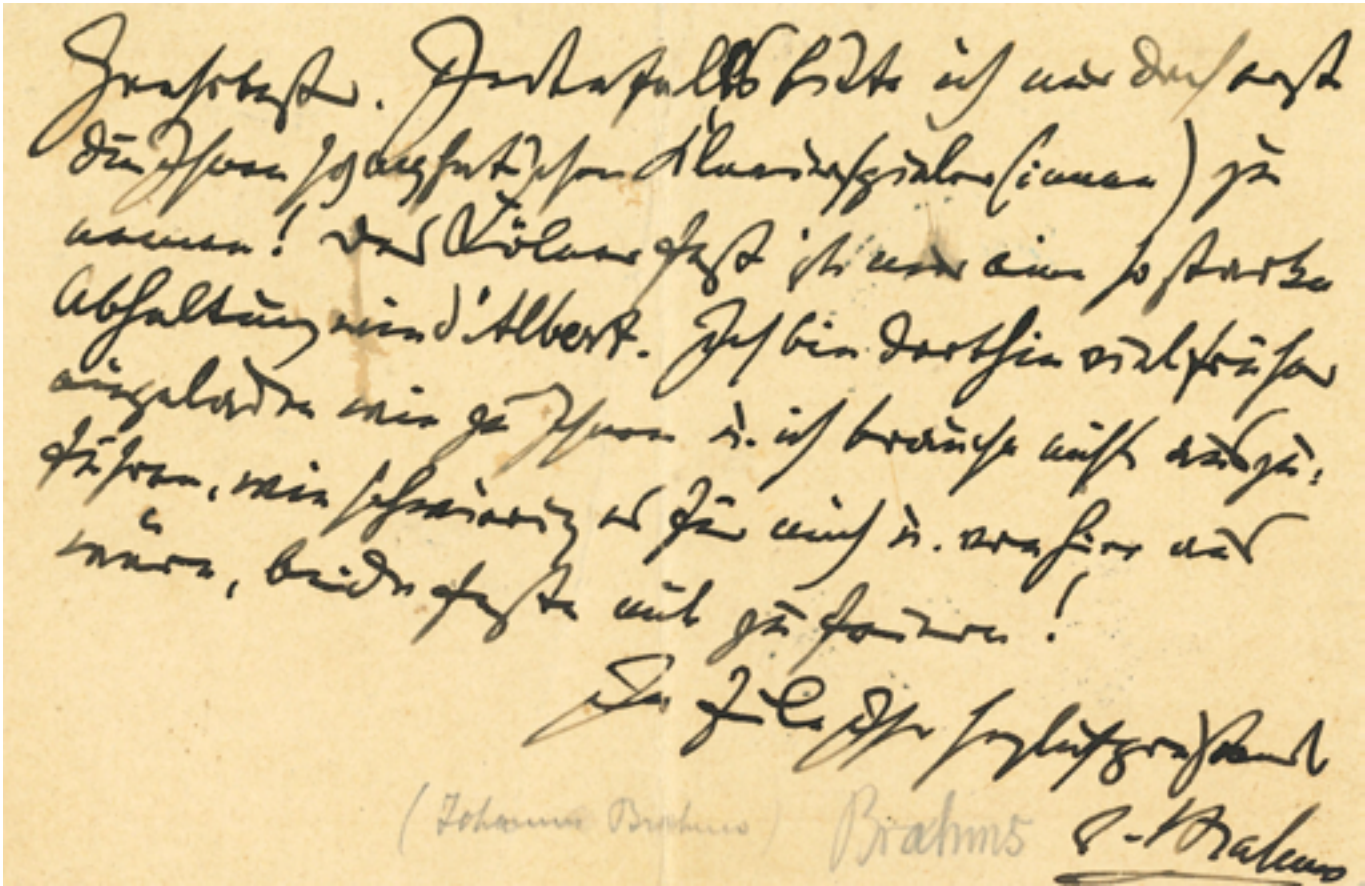 Geehrtester. Jedenfalls bitte ich mir doch erst
die Ihnen sympathischen Klavierspieler(innen) zu
nennen! Das Kölner Fest ist mir eine so starke
Abhaltung wie d'Albert. Ich bin dorthin viel früher
eingeladen wie zu Ihnen u. ich brauche nicht auszu-
führen, wie schwierig es für mich u. von hier aus
wäre, beide Feste mit zu feiern!
In Eile Ihr herzlich grüßend
J. Brahms
(Johannes Brahms)
Brahms